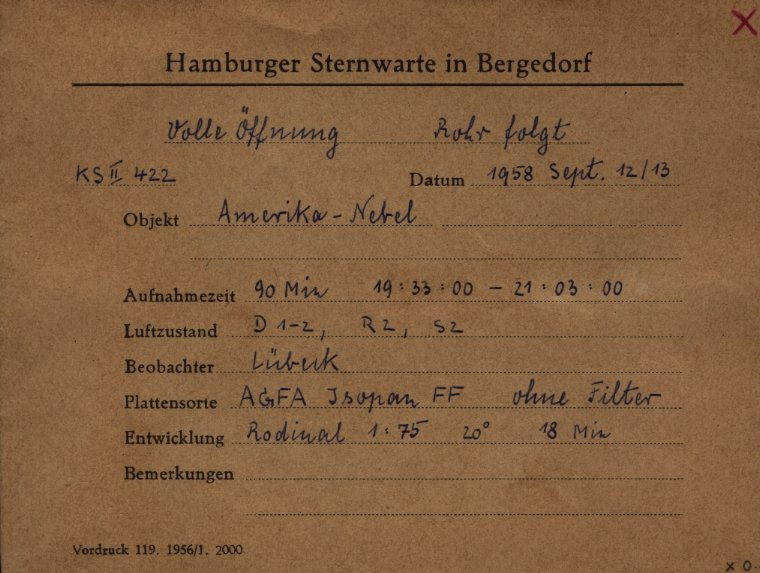 x
Hamburger Sternwarte in Bergedorf
Volle Öffnung Rohr folgt
KS II 422 Datum 1958 Sept. 12/13
Objekt Amerika-Nebel
Aufnahmezeit 90 Min 19:33:00 - 21:03:00
Luftzustand D 1-2, R2, S2
Beobachter Lübeck
Plattensorte AGFA Isopan FF ohne Filter
Entwicklung Rodinal 1:75 20° 18 Min
Bemerkungen
Vordruck 119. 1956/1. 2000
x 0.